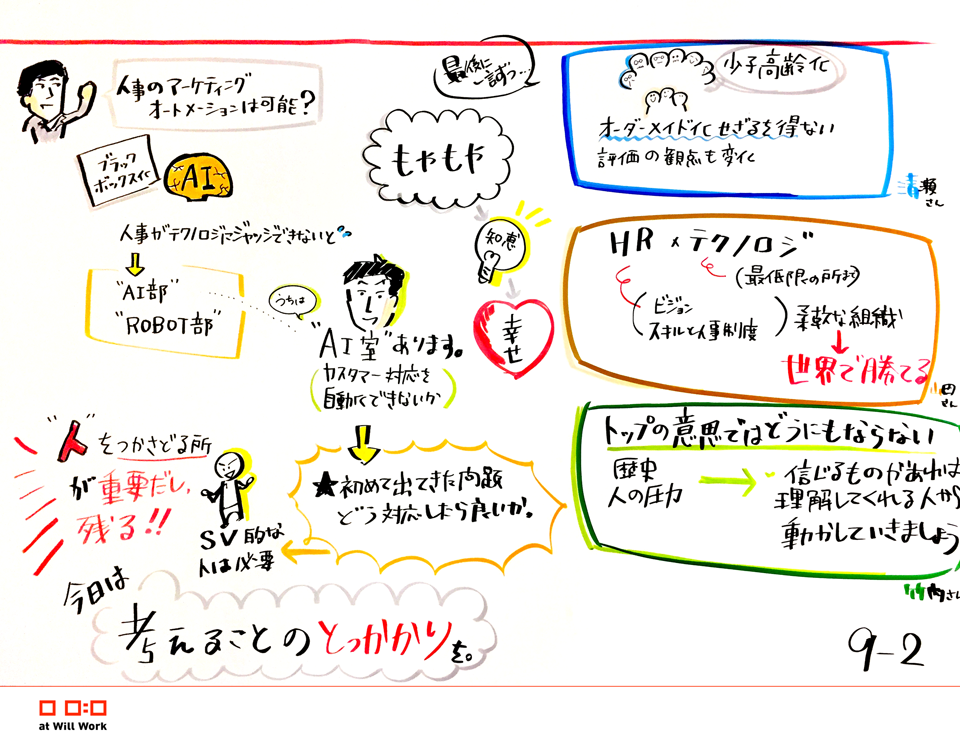 人事のマーケティング
オートメーションは可能?
ブラック
ボックス化
AI
人事がテクノロジにジャッジできないと
"AI部"
"ROBOT部"
うちは
"AI室"あります。
(カスタマー対応を
自動化できないか)
★初めて出てきた問題
どう対応したら良いか。
SV的な
人は必要
"人"をつかさどる所
が重要だし、
残る!!
今日は
考えることのとっかかりを。
最後に
一言ずつ…
もやもや
知恵
幸せ
少子高齢化
オーダーメイド化せざるを得ない
評価の観点も変化
瀬
さん
HR × テクノロジ
(最低限の所持)
(ビジョン
スキルと人事制度)
柔軟な組織
世界で勝てる
田
さん
トップの意思ではどうにもならない
歴史
人の圧力
信じるものがあれば
理解してくれる人から
動かしていきましょう
竹内さん
9-2
at Will Work